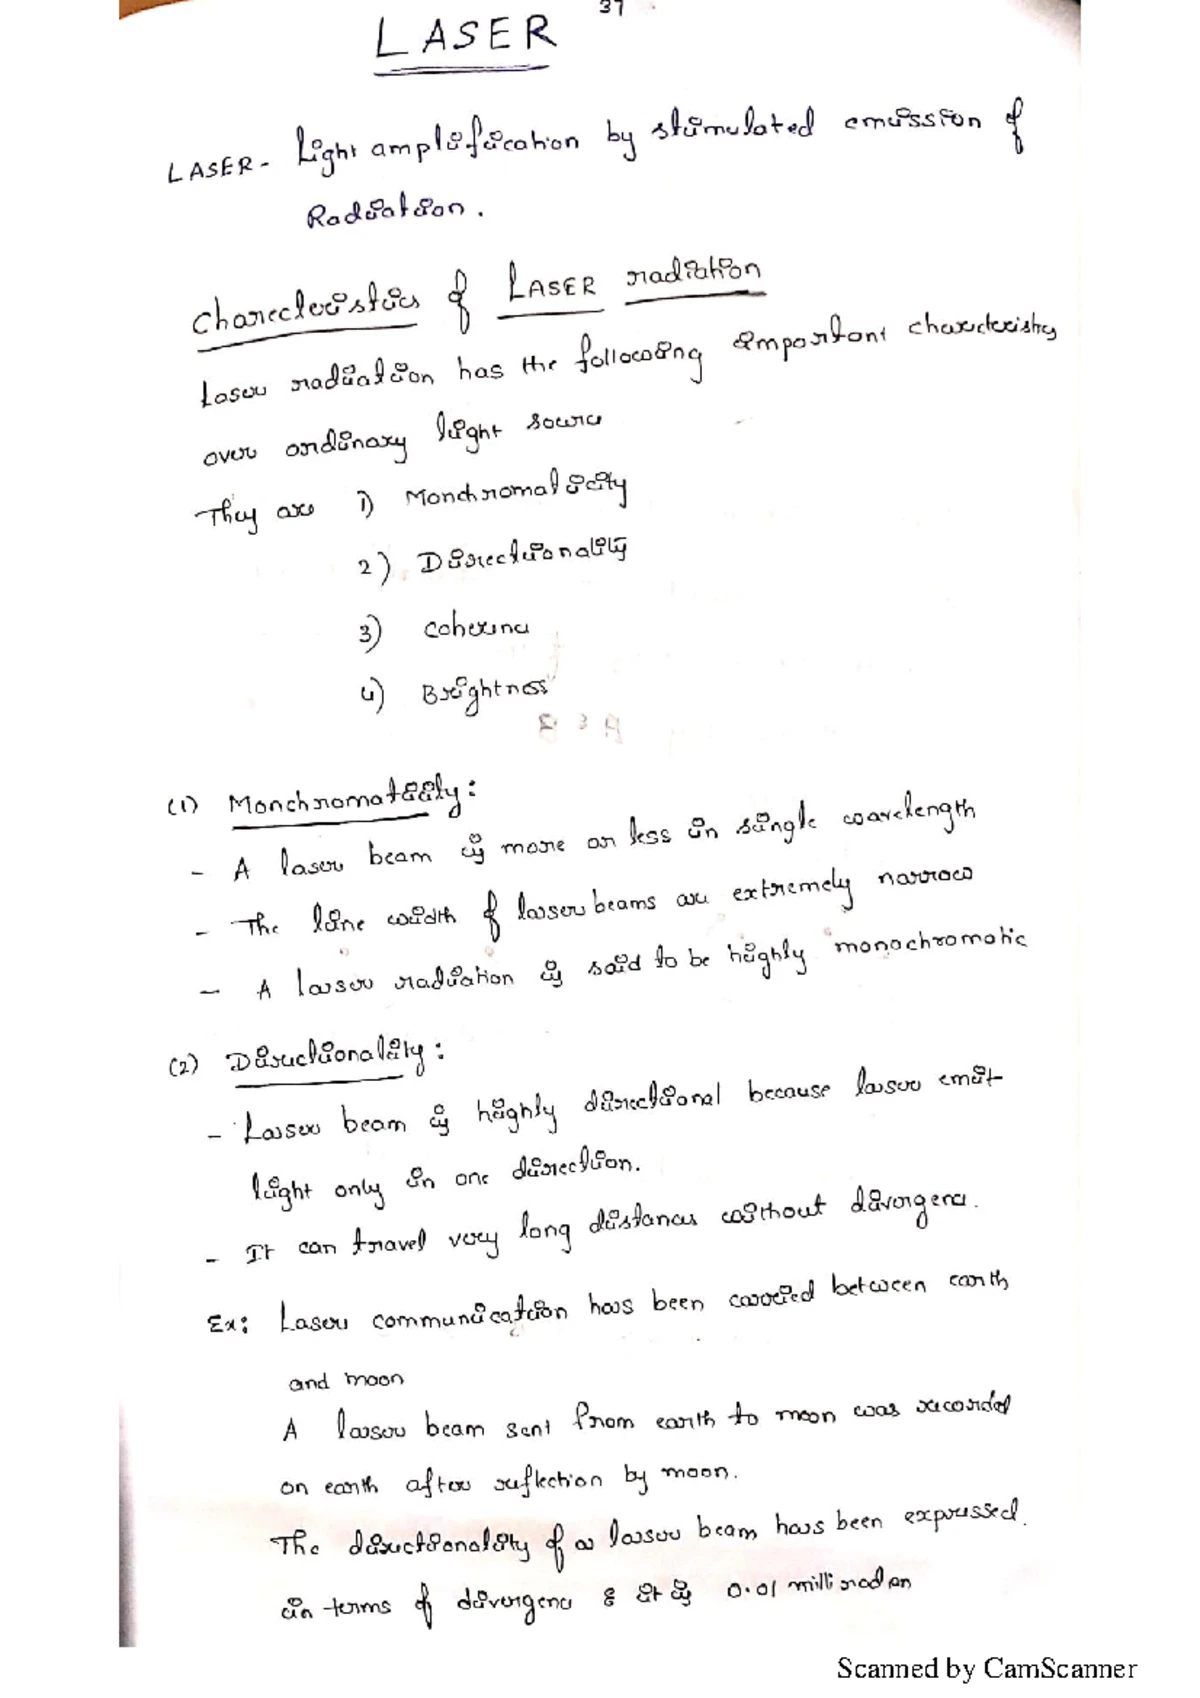 37
LASER
LASER - Light amplification by stimulated emission of
Radiation.
Charecteristics of LASER radiation
Laser radiation has the following important characteristics
over ordinary light source
They are 1) Monchromaticity
2) Directionality
3) coherence
4) Brightness
(1) Monchromaticity:
- A laser beam is more or less in single wavelength
- The line width of laser beams are extremely narrow
- A laser radiation is said to be highly monochromatic
(2) Directionality:
- Laser beam is highly directional because laser emit
light only in one direction.
- It can travel very long distances without divergence.
Ex: Laser communication has been carried between earth
and moon
A laser beam sent from earth to moon was recorded
on earth after reflection by moon.
The directionality of a laser beam has been expressed.
in terms of divergence & it is 0.01 milliradian
Scanned by CamScanner